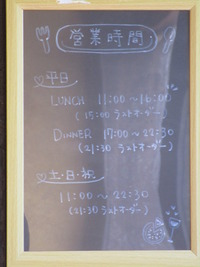 営業時間
平日
LUNCH 11:00～16:00
(15:00 ラストオーダー)
DINNER 17:00～22:30
(21:30 ラストオーダー)
土・日・祝
11:00～22:30
(21:30 ラストオーダー)